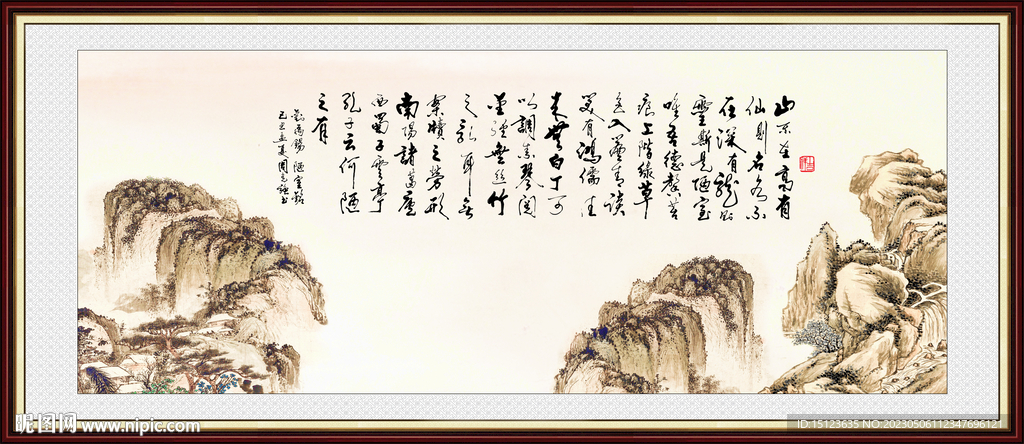 山不在高有
仙則名水不
在深有龍則
靈斯是陋室
唯吾德馨苔
痕上階綠草
色入簾青談
笑有鴻儒往
来無白丁可
以調素琴閱
金經無丝竹
之亂耳無
案牘之勞形
南陽諸葛廬
西蜀子雲亭
孔子云何陋
之有
劉禹錫 陋室銘
昵图网 www.nipic.com
ID:15123635 NO:20230506112347696121